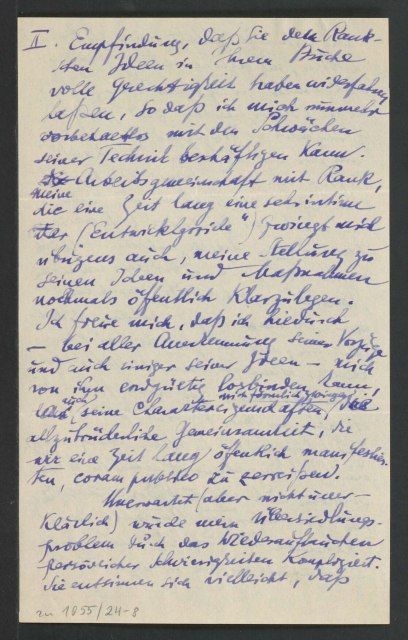 II. Empfindung, daß Sie den Rank-
schen Ideen in Ihrem Buche
volle Gerechtigkeit haben widerfahren
lassen, so daß ich mich nunmehr
vorbehaltlos mit den Schwächen
seiner Technik beschäftigen kann.
Arbeitsgemeinschaft mit Rank,
meine
die eine Zeit lang eine sehr intime
war (Entwicklgsziele") zwingt mich
übrigens auch, meine Stellung zu
seinen Ideen und Maßnahmen
nochmals öffentlich klarzulegen.
Ich freue mich, daß ich hiedurch
— bei aller Anerkennung seiner Vorzüge
und auch einiger seiner Ideen — mich
von ihm endgültig losbinden kann,
mich förmlich zwingen
seine Charaktereigenschaften, die
allzubrüderliche Gemeinsamkeit, die
wir eine Zeit lang öffentlich manifestier-
ten, coram publico zu zerreißen.
Unerwartet (aber nicht uner-
klärlich) wurde mein Übersiedlungs-
problem durch das Wiederauftauchen
persönlicher Schwierigkeiten kompliziert.
Sie entsinnen sich vielleicht, daß
zu 1055/24-8